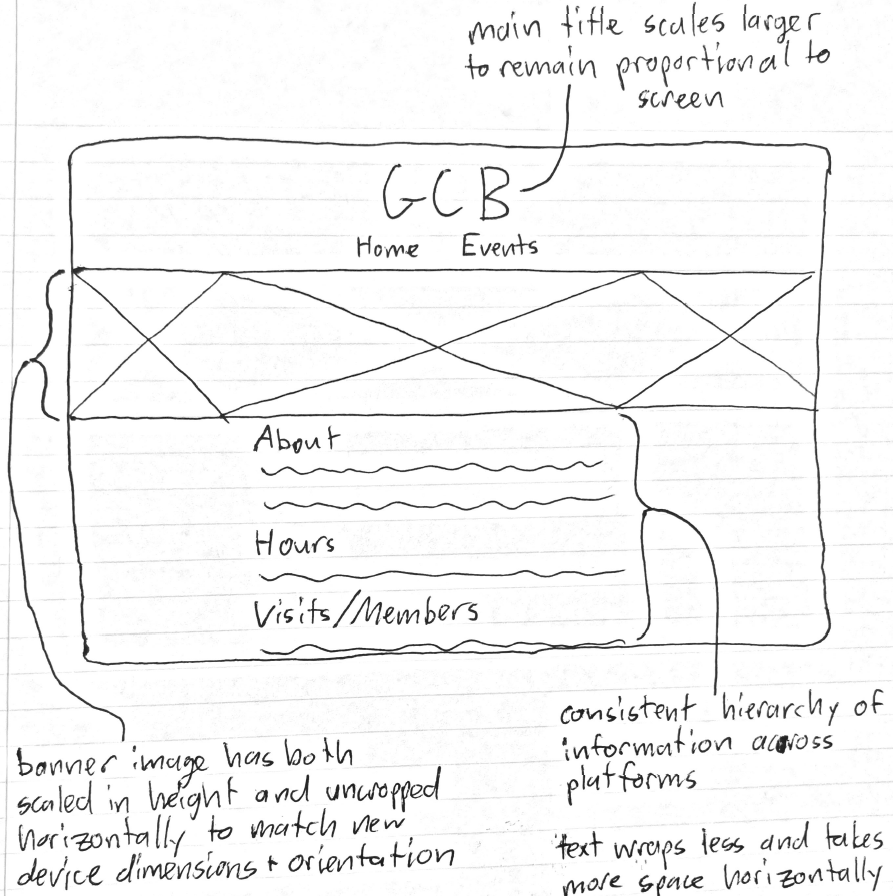 main title scales larger
to remain proportional to
screen
GCB
Home Events
About
Hours
Visits/Members
banner image has both
scaled in height and uncropped
horizontally to match new
device dimensions + orientation
consistent hierarchy of
information across
platforms
text wraps less and takes
more space horizontally